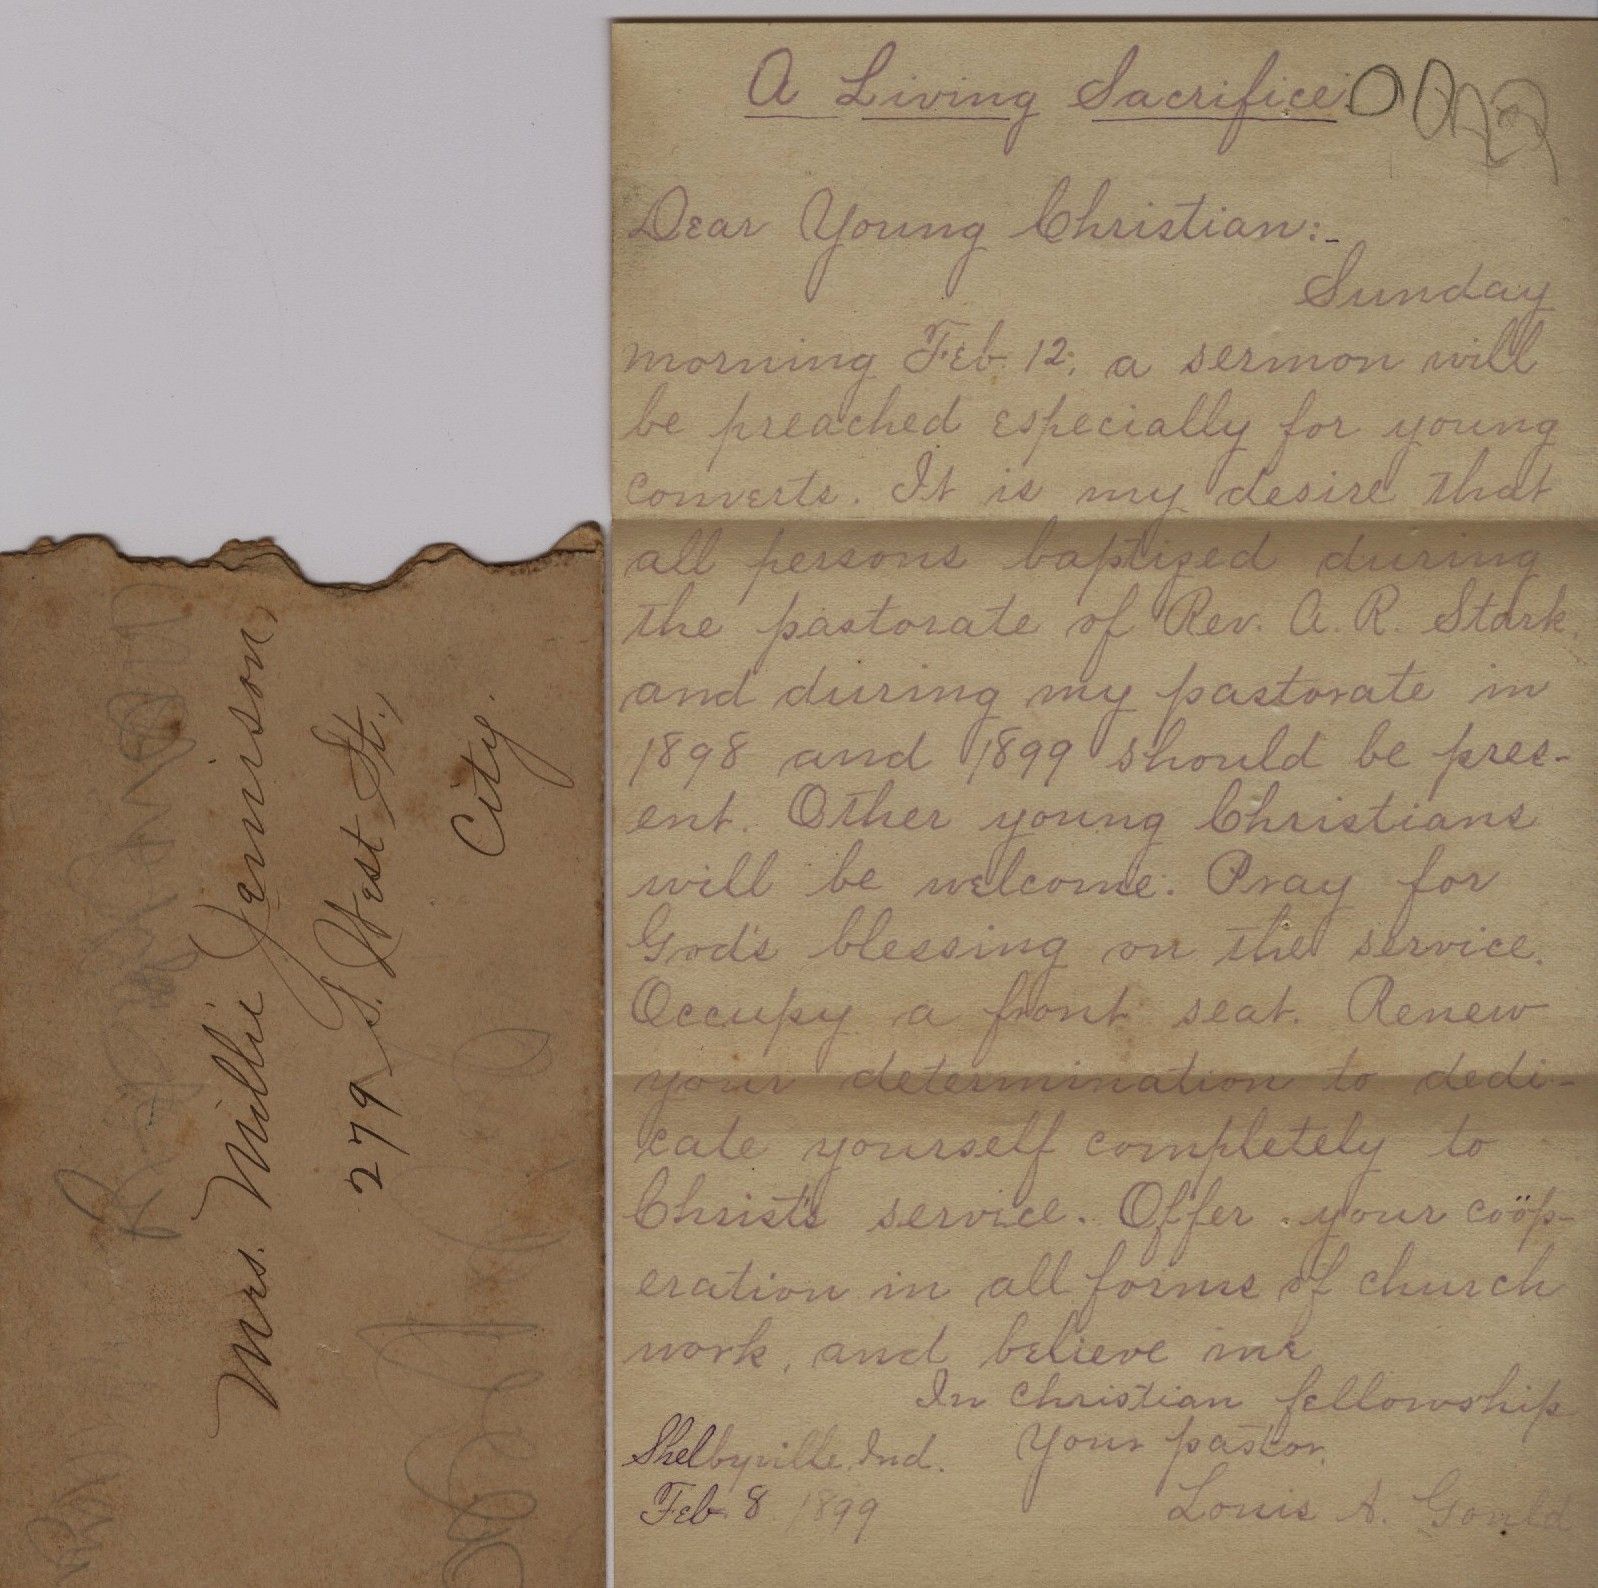 A Living Sacrifice.
Dear Young Christian:-
Sunday
morning Feb. 12, a sermon will
be preached especially for young
converts. It is my desire that
all persons baptized during
the pastorate of Rev. A. R. Stark,
and during my pastorate in
1898 and 1899 should be pres-
ent. Other young Christians
will be welcome. Pray for
God's blessing on the service.
Occupy a front seat. Renew
your determination to dedi-
cate yourself completely to
Christ's service. Offer your coöp-
eration in all forms of church
work, and believe me
In Christian fellowship
Your pastor,
Louis A. Gould
Shelbyville, Ind.
Feb. 8 1899
Mrs. Millie Jennison,
279 S. West St.,
City.